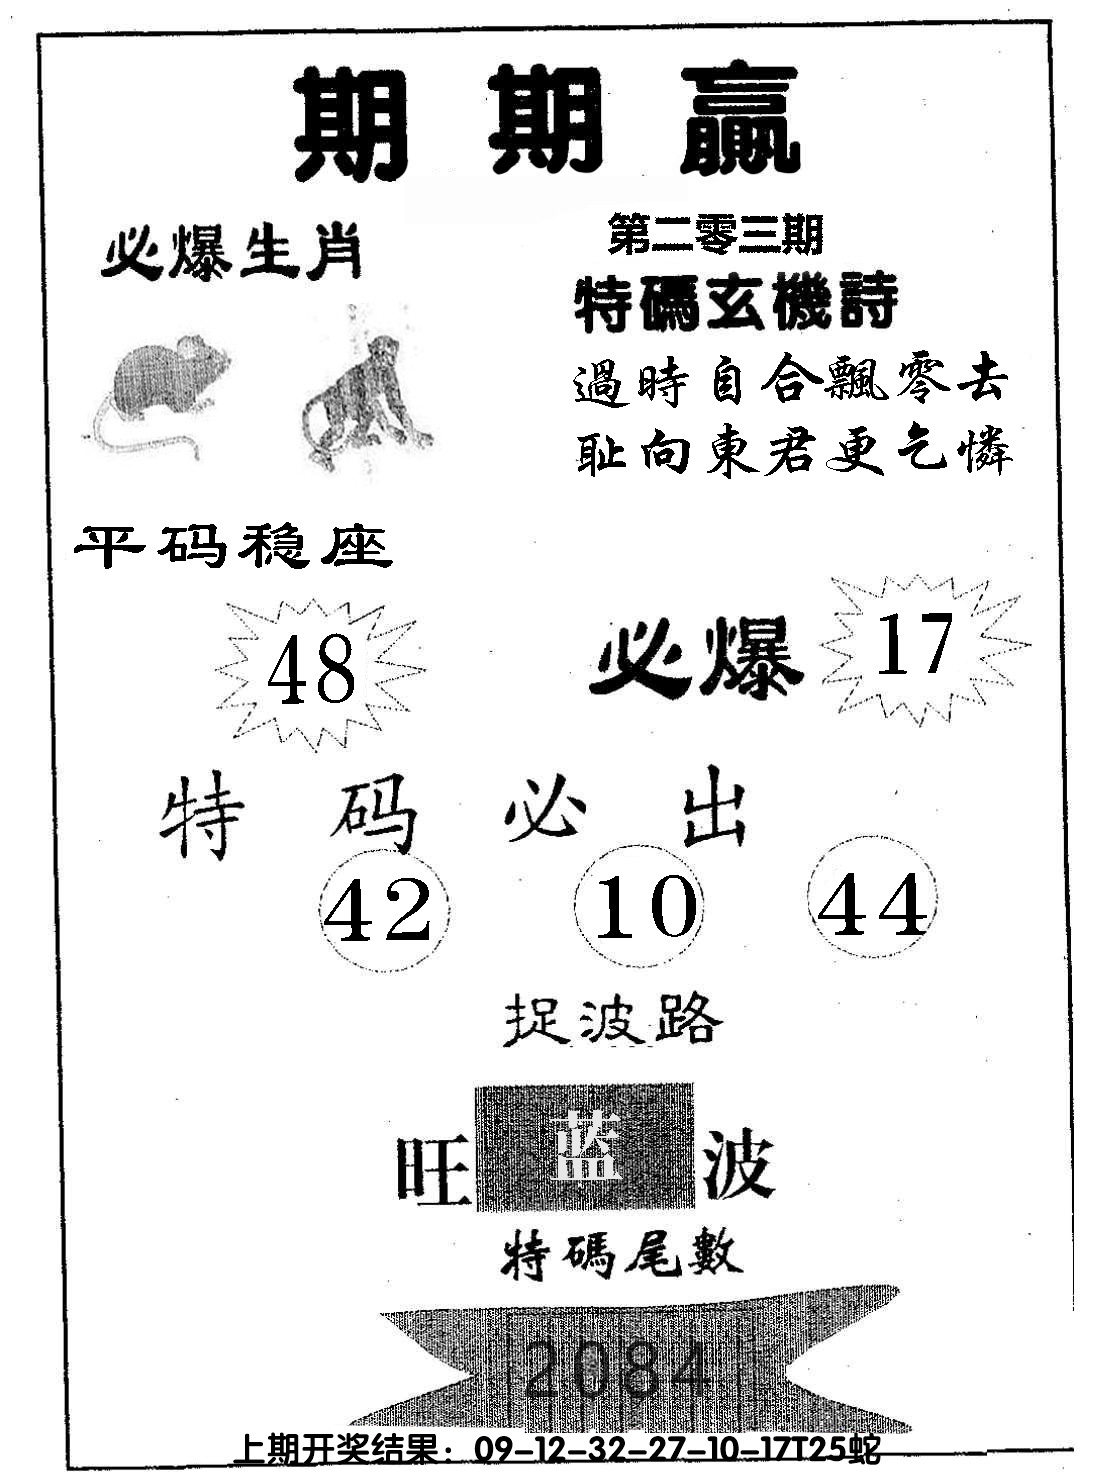 期期贏
必爆生肖
第二零三期
特碼玄機詩
過時自合飄零去
耻向東君更乞憐
平码稳座
48
必爆 17
特码必出
42 10 44
捉波路
旺 蓝 波
特碼尾數
2084
上期开奖结果：09-12-32-27-10-17T25蛇